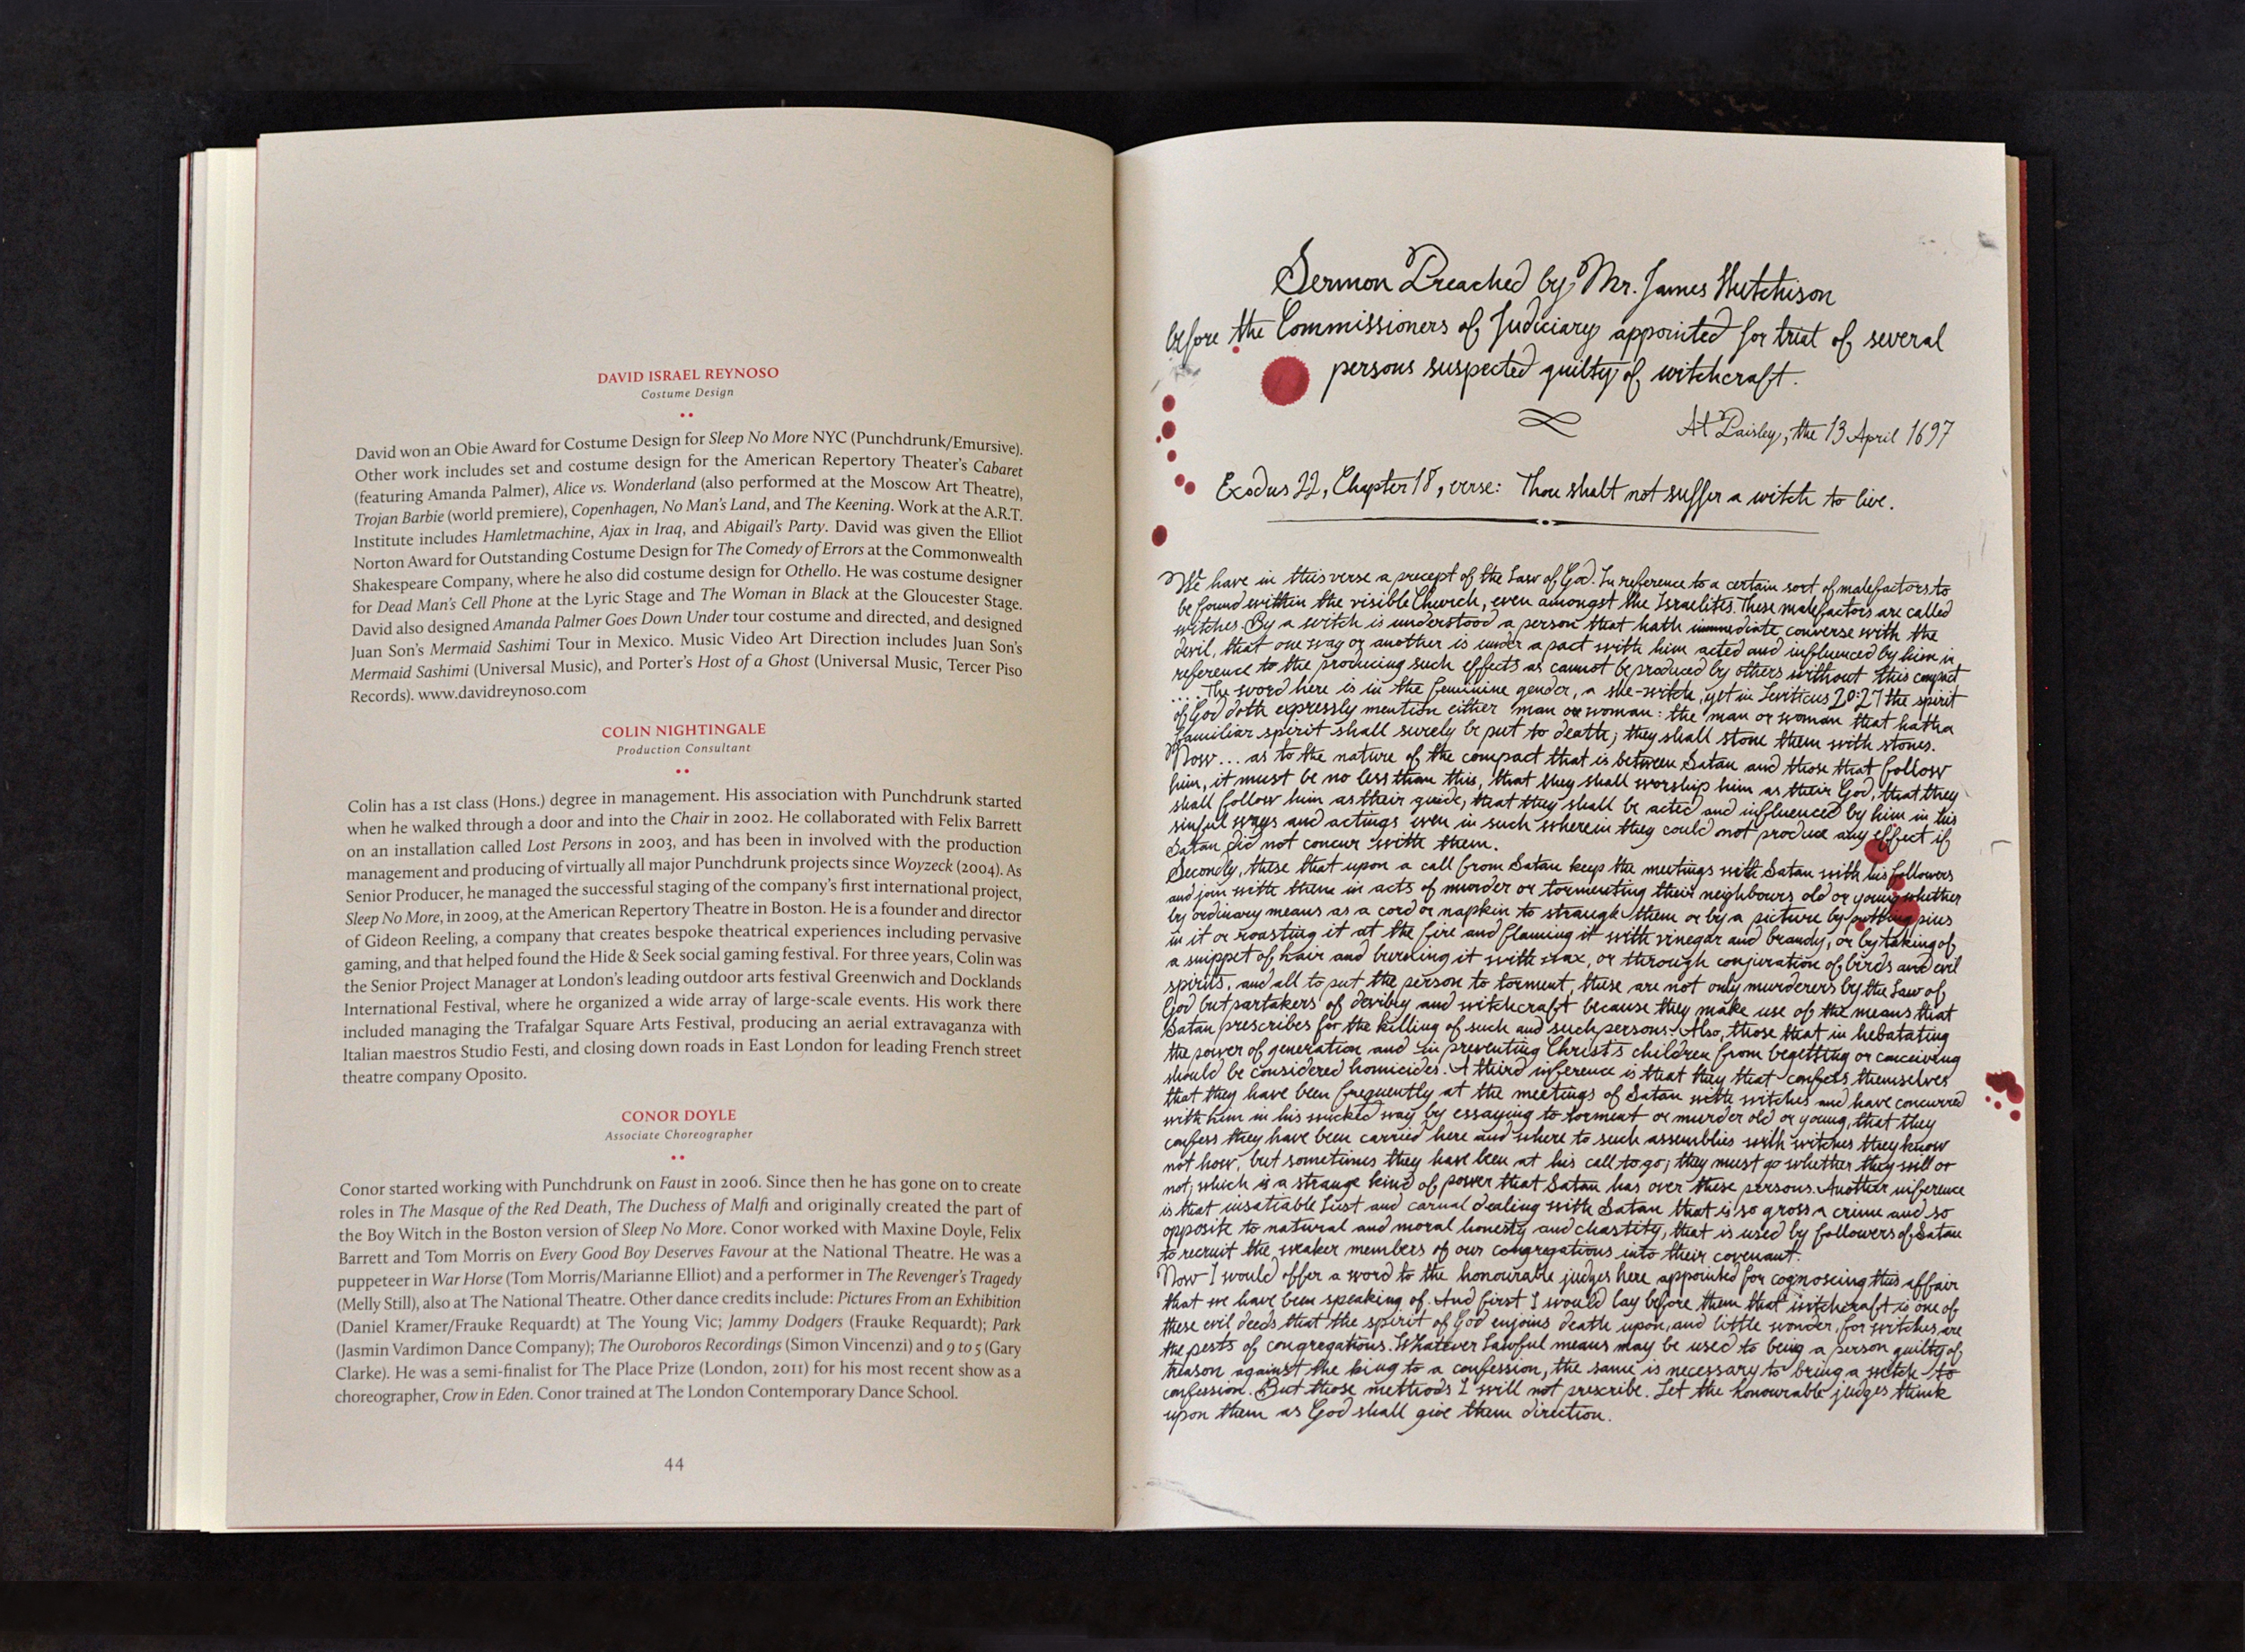 DAVID ISRAEL REYNOSO
Costume Design
David won an Obie Award for Costume Design for Sleep No More NYC (Punchdrunk/Emursive).
Other work includes set and costume design for the American Repertory Theater's Cabaret
(featuring Amanda Palmer), Alice vs. Wonderland (also performed at the Moscow Art Theatre),
Trojan Barbie (world premiere), Copenhagen, No Man's Land, and The Keening. Work at the A.R.T.
Institute includes Hamletmachine, Ajax in Iraq, and Abigail's Party. David was given the Elliot
Norton Award for Outstanding Costume Design for The Comedy of Errors at the Commonwealth
Shakespeare Company, where he also did costume design for Othello. He was costume designer
for Dead Man's Cell Phone at the Lyric Stage and The Woman in Black at the Gloucester Stage.
David also designed Amanda Palmer Goes Down Under tour costume and directed, and designed
Juan Son's Mermaid Sashimi Tour in Mexico. Music Video Art Direction includes Juan Son's
Mermaid Sashimi (Universal Music), and Porter's Host of a Ghost (Universal Music, Tercer Piso
Records). www.davidreynoso.com
COLIN NIGHTINGALE
Production Consultant
Colin has a 1st class (Hons.) degree in management. His association with Punchdrunk started
when he walked through a door and into the Chair in 2002. He collaborated with Felix Barrett
on an installation called Lost Persons in 2003, and has been in involved with the production
management and producing of virtually all major Punchdrunk projects since Woyzeck (2004). As
Senior Producer, he managed the successful staging of the company's first international project,
Sleep No More, in 2009, at the American Repertory Theatre in Boston. He is a founder and director
of Gideon Reeling, a company that creates bespoke theatrical experiences including pervasive
gaming, and that helped found the Hide & Seek social gaming festival. For three years, Colin was
the Senior Project Manager at London's leading outdoor arts festival Greenwich and Docklands
International Festival, where he organized a wide array of large-scale events. His work there
included managing the Trafalgar Square Arts Festival, producing an aerial extravaganza with
Italian maestros Studio Festi, and closing down roads in East London for leading French street
theatre company Oposito.
CONOR DOYLE
Associate Choreographer
Conor started working with Punchdrunk on Faust in 2006. Since then he has gone on to create
roles in The Masque of the Red Death, The Duchess of Malfi and originally created the part of
the Boy Witch in the Boston version of Sleep No More. Conor worked with Maxine Doyle, Felix
Barrett and Tom Morris on Every Good Boy Deserves Favour at the National Theatre. He was a
puppeteer in War Horse (Tom Morris/Marianne Elliot) and a performer in The Revenger's Tragedy
(Melly Still), also at The National Theatre. Other dance credits include: Pictures From an Exhibition
(Daniel Kramer/Frauke Requardt) at The Young Vic; Jammy Dodgers (Frauke Requardt); Park
(Jasmin Vardimon Dance Company); The Ouroboros Recordings (Simon Vincenzi) and 9 to 5 (Gary
Clarke). He was a semi-finalist for The Place Prize (London, 2011) for his most recent show as a
choreographer, Crow in Eden. Conor trained at The London Contemporary Dance School.
44
Sermon Preached by Mr. James Hutchison
before the Commissioners of Judiciary appointed for trial of several
persons suspected guilty of witchcraft.
At Paisley, the 13 April 1697
Exodus 22, Chapter 18, verse: Thou shalt not suffer a witch to live.
We have in this verse a precept of the Law of God. In reference to a certain sort of malefactors to
be found within the visible Church, even amongst the Israelites. These malefactors are called
witches. By a witch is understood a person that hath immediate converse with the
devil, that one way or another is under a pact with him acted and influenced by him in
reference to the producing such effects as cannot be produced by others without this compact
.... The word here is in the feminine gender, a she-witch, yet in Leviticus 20:27 the spirit
of God doth expressly mention either man or woman: the man or woman that hath a
familiar spirit shall surely be put to death; they shall stone them with stones.
Now... as to the nature of the compact that is between Satan and those that follow
him, it must be no less than this, that they shall worship him as their God, that they
shall follow him as their guide, that they shall be acted and influenced by him in his
sinful ways and actings even in such wherein they could not produce any effect if
Satan did not concur with them.
Secondly, these that upon a call from Satan keep the meetings with Satan with his followers
and join with them in acts of murder or tormenting their neighbours old or young whether
by ordinary means as a cord or napkin to strangle them or by a picture by putting pins
in it or roasting it at the fire and flaming it with vinegar and brandy, or by taking of
a snippet of hair and burning it with wax, or through conjuration of birds and evil
spirits, and all to put the person to torment, these are not only murderers by the Law of
God but partakers of devilry and witchcraft because they make use of the means that
Satan prescribes for the killing of such and such persons. Also, those that in hebatating
the power of generation and in preventing Christ's children from begetting or conceiving
should be considered homicides. A third inference is that they that confess themselves
that they have been frequently at the meetings of Satan with witches and have concurred
with him in his wicked way by essaying to torment or murder old or young, that they
confess they have been carried here and where to such assemblies with witches they know
not how, but sometimes they have been at his call to go; they must go whether they will or
not, which is a strange kind of power that Satan has over these persons. Another inference
is that insatiable Lust and carnal dealing with Satan that is so gross a crime and so
opposite to natural and moral honesty and chastity, that is used by followers of Satan
to recruit the weaker members of our congregations into their covenant.
Now I would offer a word to the honourable judges here appointed for cognoscing this affair
that we have been speaking of. And first I would lay before them that witchcraft is one of
these evil deeds that the spirit of God enjoins death upon, and little wonder, for witches are
the pests of congregations. Whatever Lawful means may be used to being a person guilty of
treason against the king to a confession, the same is necessary to bring a witch to
confession. But those methods I will not prescribe. Let the honourable judges think
upon them as God shall give them direction.